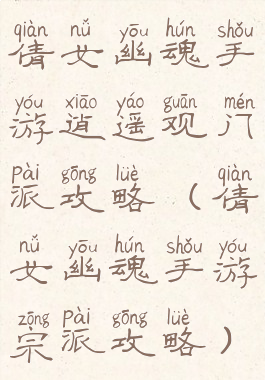 qiàn nǚ yōu hún shǒu
倩女幽魂手
yóu xiāo yáo guān mén
游逍遥观门
Pài gōng lüè qiàn
派攻略（倩
nǚ yōu hún shǒu yóu
女幽魂手游
zōng Pài gōng lüè
宗派攻略）